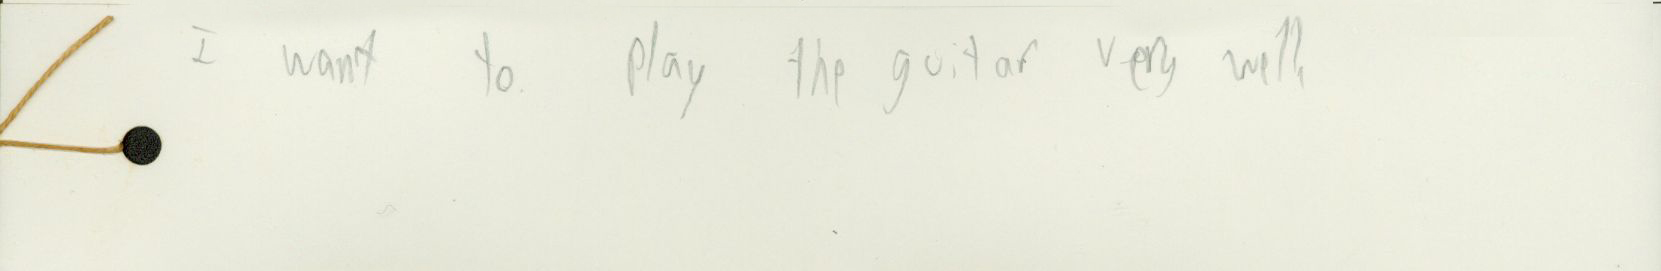 I want to play the guitar very well